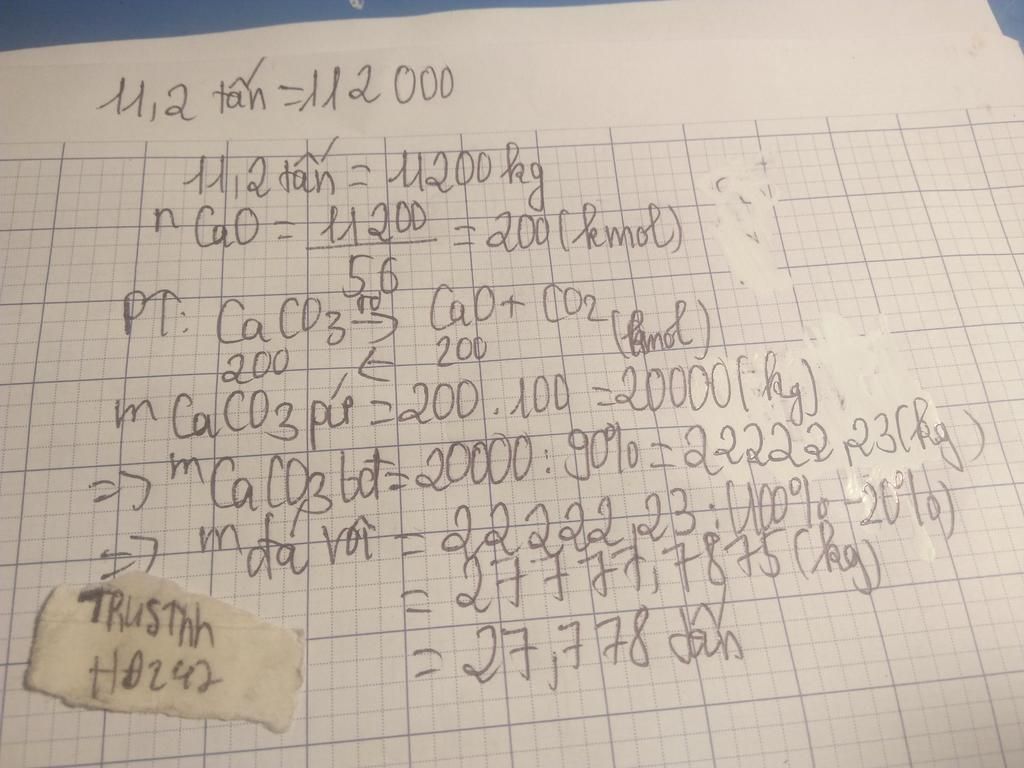 11,2 tấn = 112 000
11,2 tấn = 11200 kg
n CaO = 11200 / 56 = 200 (kmol)
PT: CaCO3 t° → CaO + CO2 (kmol)
200 ← 200
m CaCO3 pứ = 200 . 100 = 20000 (kg)
=> m CaCO3 bđ = 20000 : 90% = 22222,23 (kg)
=> m đá vôi = 22222,23 : (100% - 20%)
= 27777,7875 (kg)
= 27,778 tấn
TRUSTnn
HD247